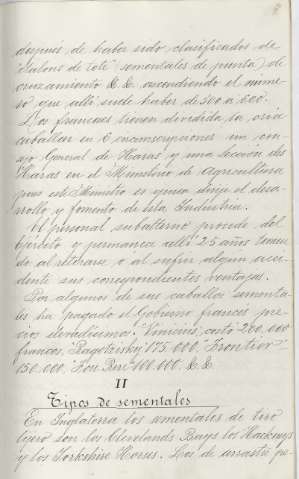 después de haber sido clasificados de
"Etalons de tete" sementales de punta, de
cruzamiento &. &. ascendiendo el nume-
ro que alli suele haber de 500 a 600.
Los franceses tienen dividida la cria
caballar en 6 circunscripciones un con-
sejo General de Haras y una Seccion de
Haras en el Ministerio de Agricultura
pues este Ministro es quien dirije el desa-
rrollo y fomento de esta Industria.
El personal subalterno procede del
Ejército y permanece alli 25 años tenien-
do al retirarse o al sufrir algun acci-
dente sus correspondientes ventajas.
Por algunos de sus caballos sementa-
les ha pagado el Gobierno frances pre-
cios elevadísimos. "Vinicius", costó 260,000
francos, 175.000, "Frontier"
150.000, 100.000. &. &.
II
Tipos de sementales
En Inglaterra los sementales de tiro
lijero son los Clevelands Bays los Hackneys
y los Yorkshire Horses. Los de arrastre pe-